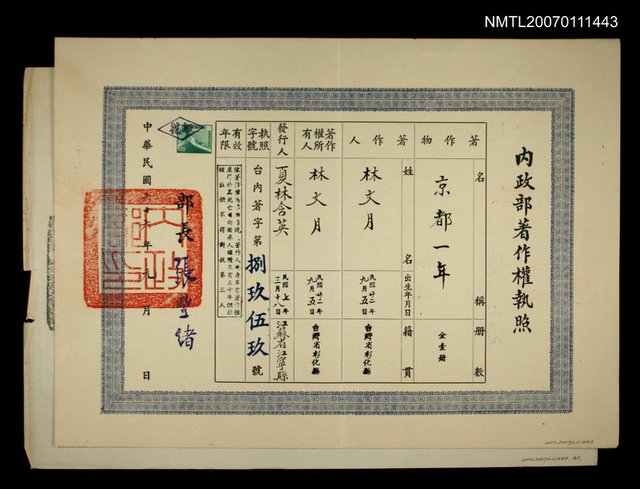 NMTL20070111443
內政部著作權執照
著作物
名稱
冊數
京都一年
全壹冊
著作人
姓名
出生年月日
籍貫
林文月
民國廿二年九月五日
台灣省彰化縣
著作權所有人
林文月
民國廿二年九月五日
台灣省彰化縣
發行人
夏林含英
民國七年三月十八日
江蘇省江寧縣
執照字號
台內著字第捌玖伍玖號
有效年限
部長 張豐緒
中華民國
年元月
日
NMTL20070111443